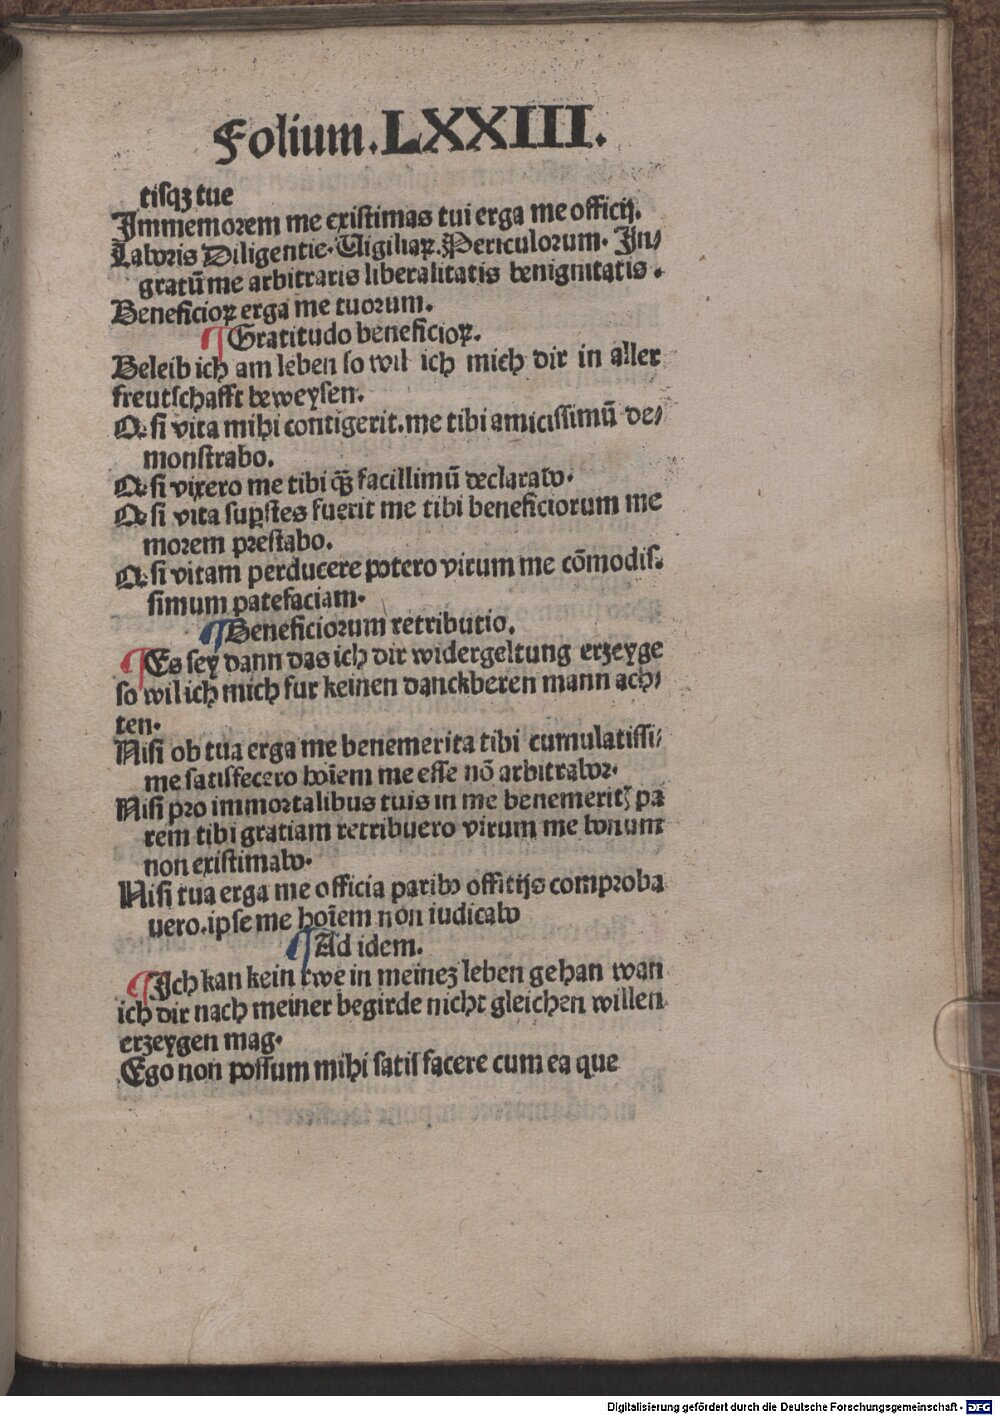 Folium.LXXIII.
tisqꝫ tue
Immemorem me existimas tui erga me officij.
Laboris Diligentie. Uigiliaꝝ. Periculorum. In⸗
gratū me arbitraris liberalitatis benignitatis.
Beneficioꝝ erga me tuorum.
¶ Gratitudo beneficioꝝ.
Beleib ich am leben so wil ich mich dir in aller
freutschafft beweysen.
Q. si vita mihi contigerit. me tibi amicissimū de⸗
monstrabo.
Q. si vixero me tibi qꝫ̄ facillimū declarabo.
Q. si vita suꝑstes fuerit me tibi beneficiorum me
morem prestabo.
Q. si vitam perducere potero virum me cōmodis⸗
simum patefaciam.
¶ Beneficiorum retributio.
¶ Es sey dann das ich dir widergeltung erzeyge
so wil ich mich fur keinen danckberen mann ach⸗
ten.
Nisi ob tua erga me benemerita tibi cumulatissi⸗
me satisfecero hoīem me esse nō arbitrabor.
Nisi pro immortalibus tuis in me benemeritꝭ pa
rem tibi gratiam retribuero virum me bonum
non existimabo.
Nisi tua erga me officia paribꝰ offitijs comproba
uero. ipse me hoīem non iudicabo
¶ Ad idem.
¶ Ich kan kein rwe in meinez leben gehan wan
ich dir nach meiner begirde nicht gleichen willen
erzeygen mag.
Ego non possum mihi satis facere cum ea que
Digitalisierung gefördert durch die Deutsche Forschungsgemeinschaft - DFG